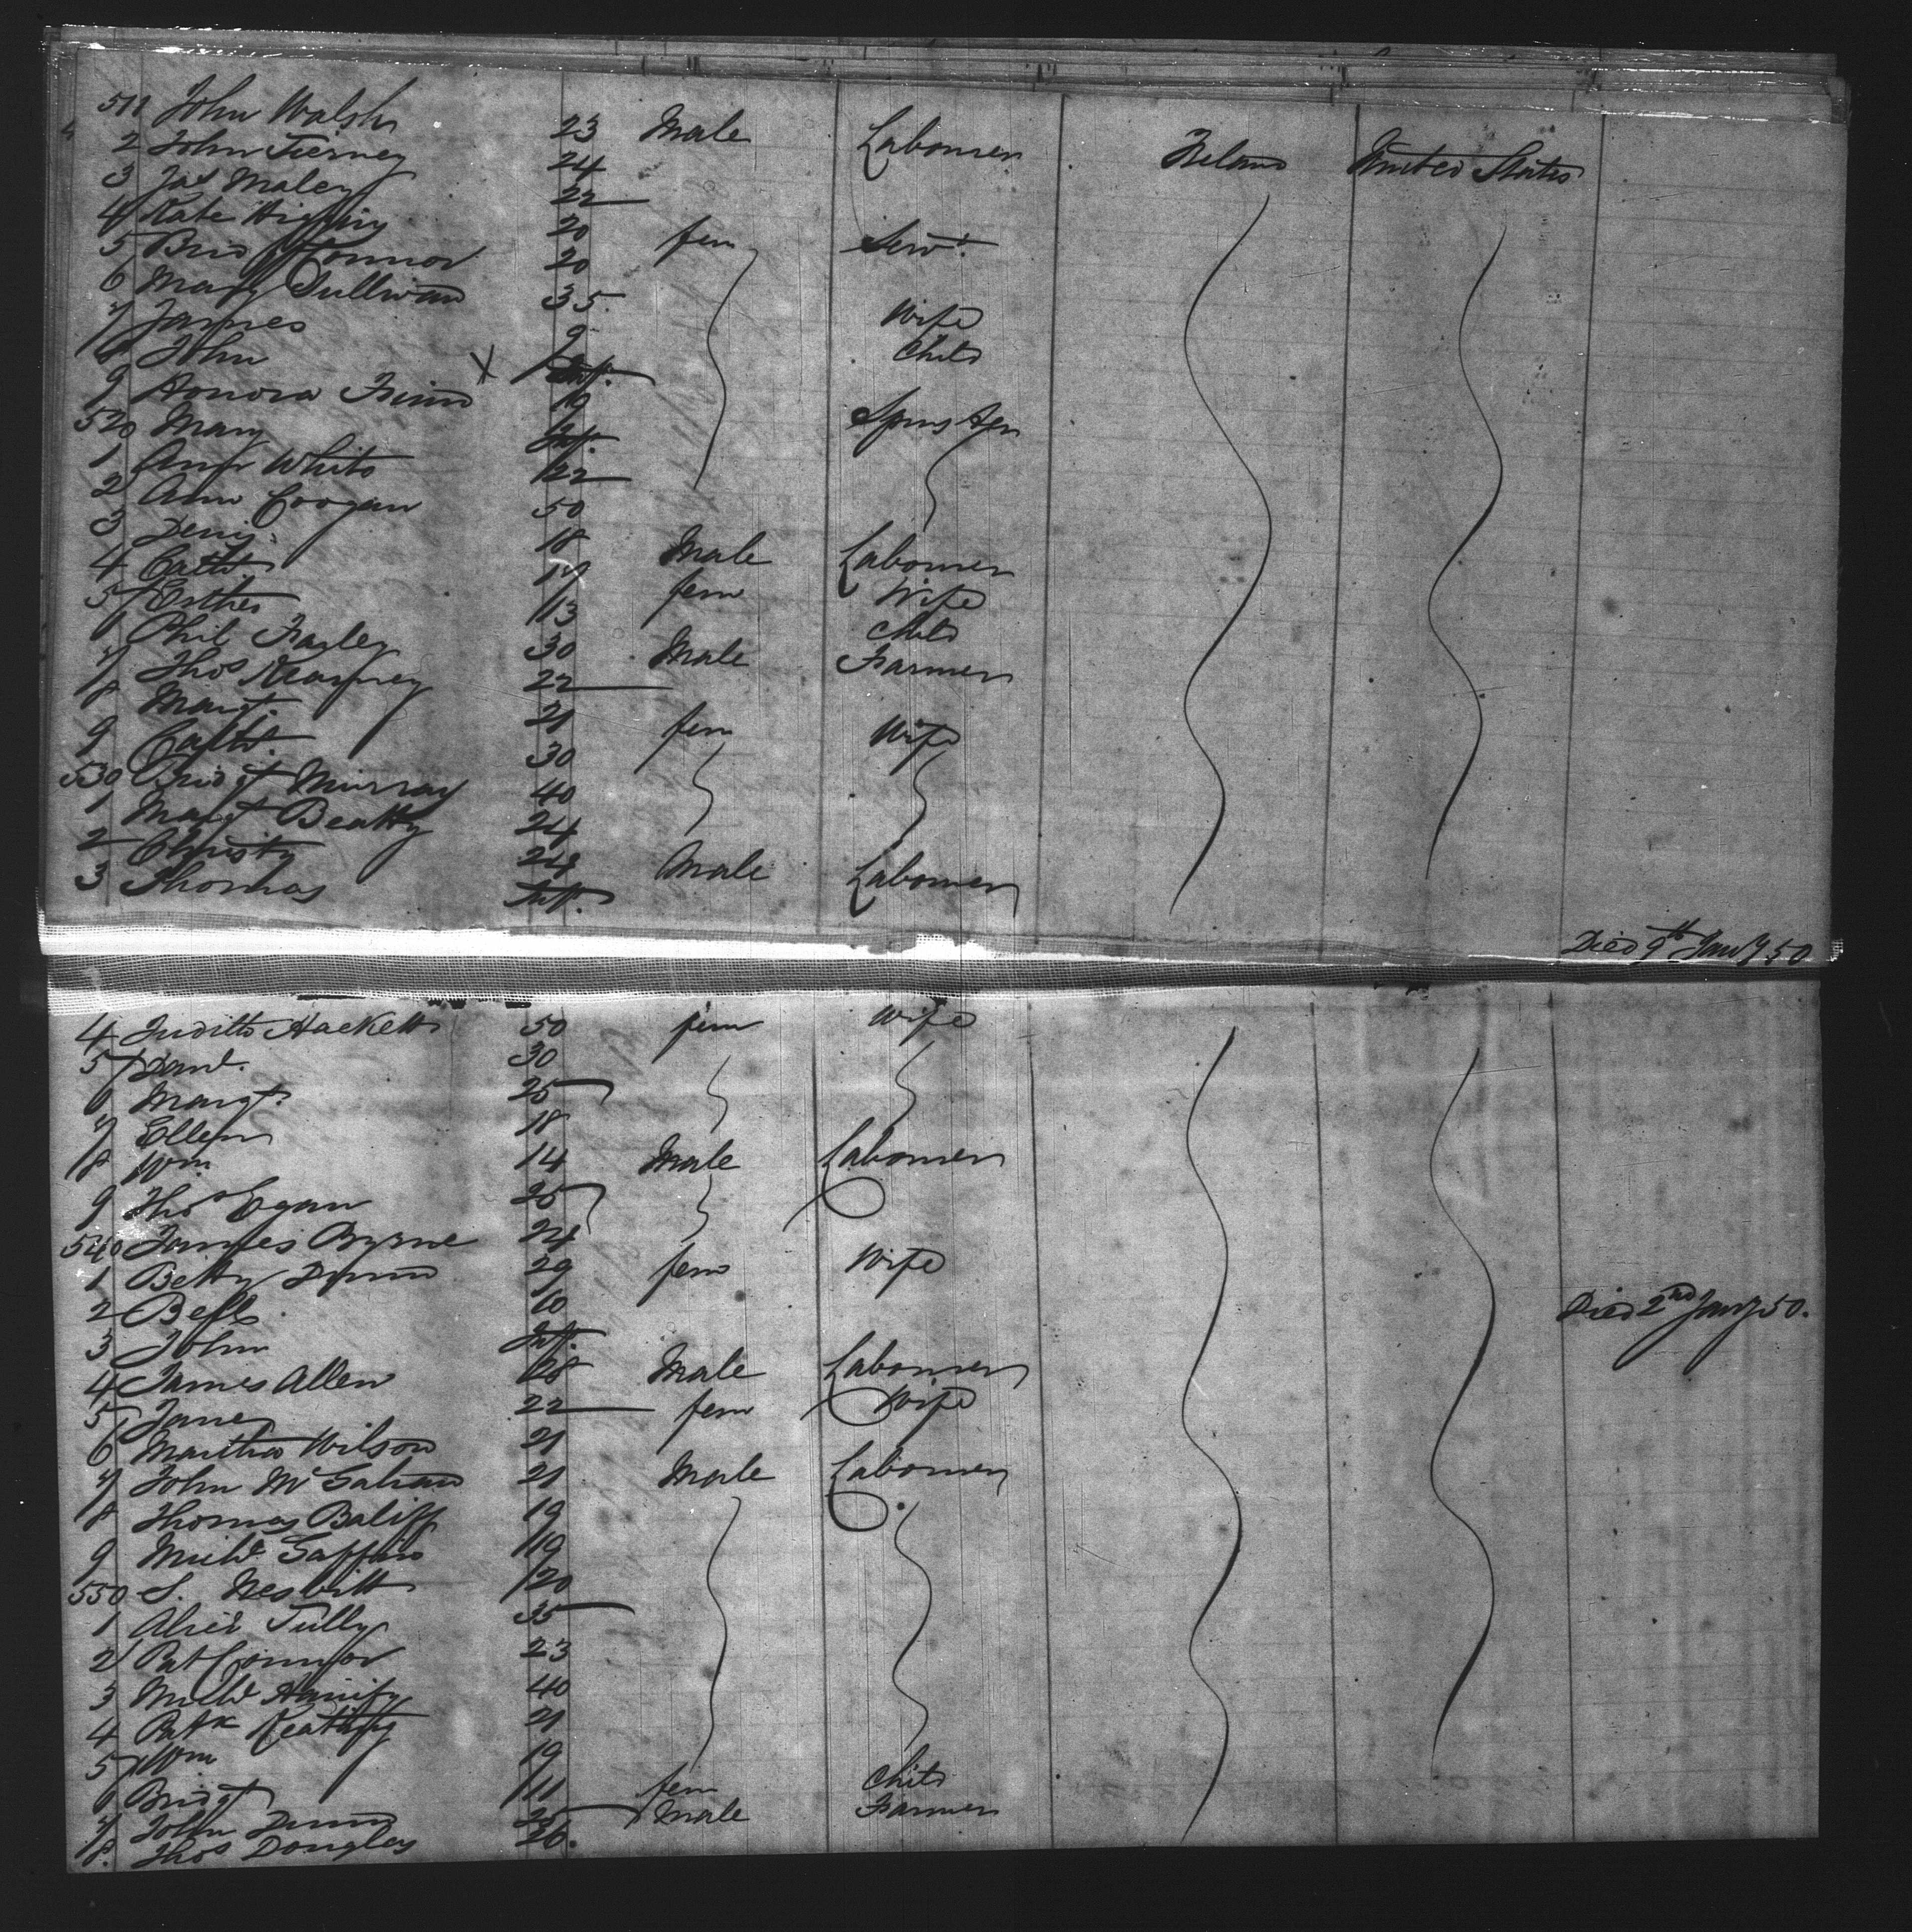 511 John Walsh 23 Male Labourer Ireland United States
2 John Tierney 24
3 Jas Maley 22
4 Kate Higgins 20 fem Servt.
5 Brid O'Connor 20
6 Mary Sullivan 35 Wife
7 James 9 Child
8 John X Inf.
9 Honora Finn 19 Spinster
520 Mary Inf.
1 Ann White 22
2 Ann Coogan 50
3 Denis 18 Male Labourer
4 Cath 17 fem Wife
5 Esther 13 Child
6 Phil Farley 30 Male Farmer
7 Thos Kearney 22
8 Margt. 21 fem Wife
9 Cath. 30
530 Bridgt Murray 40
1 Margt Beatty 24
2 Christy 24 Male Labourer
3 Thomas Inf. Died 9th Jany 50
4 Judith Hackett 50 fem Wife
5 Danl. 30
6 Margt. 25
7 Ellen 18
8 Wm 14 Male Labourer
9 Thos Egan 25
540 James Byrne 24
1 Betty Dunn 29 fem Wife
2 Bess 10
3 John Inf. Died 2nd Jany 50.
4 James Allen 28 Male Labourer
5 Jane 22 fem Wife
6 Martha Wilson 21
7 John McGahan 21 Male Labourer
8 Thomas Baliff 19
9 Michl Gaffin 19
550 S. Nesbitt 20
1 Alice Tully 35
2 Pat Connor 23
3 Michl Hanify 40
4 Patk Keating 21
5 Wm 19
6 Bridgt 11 fem Child
7 John Dunn 25 Male Farmer
8. Thos Douglas 26.